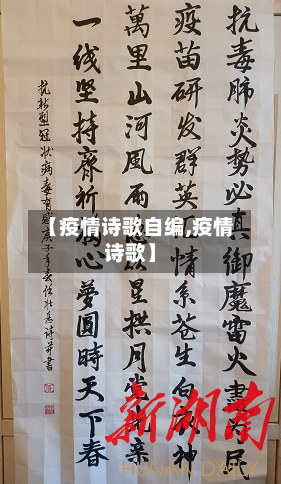 抗毒肺炎势必真御魔雷火盡為民
疫苗研发群英情系苍生白衣神
萬里山河風雨星拱月
一线坚持齊祈心夢圓時天下春
抗新型冠状病毒有感庚子年诗并書
【疫情诗歌自编,疫情
诗歌】
新湖南
HUNAN DAILY